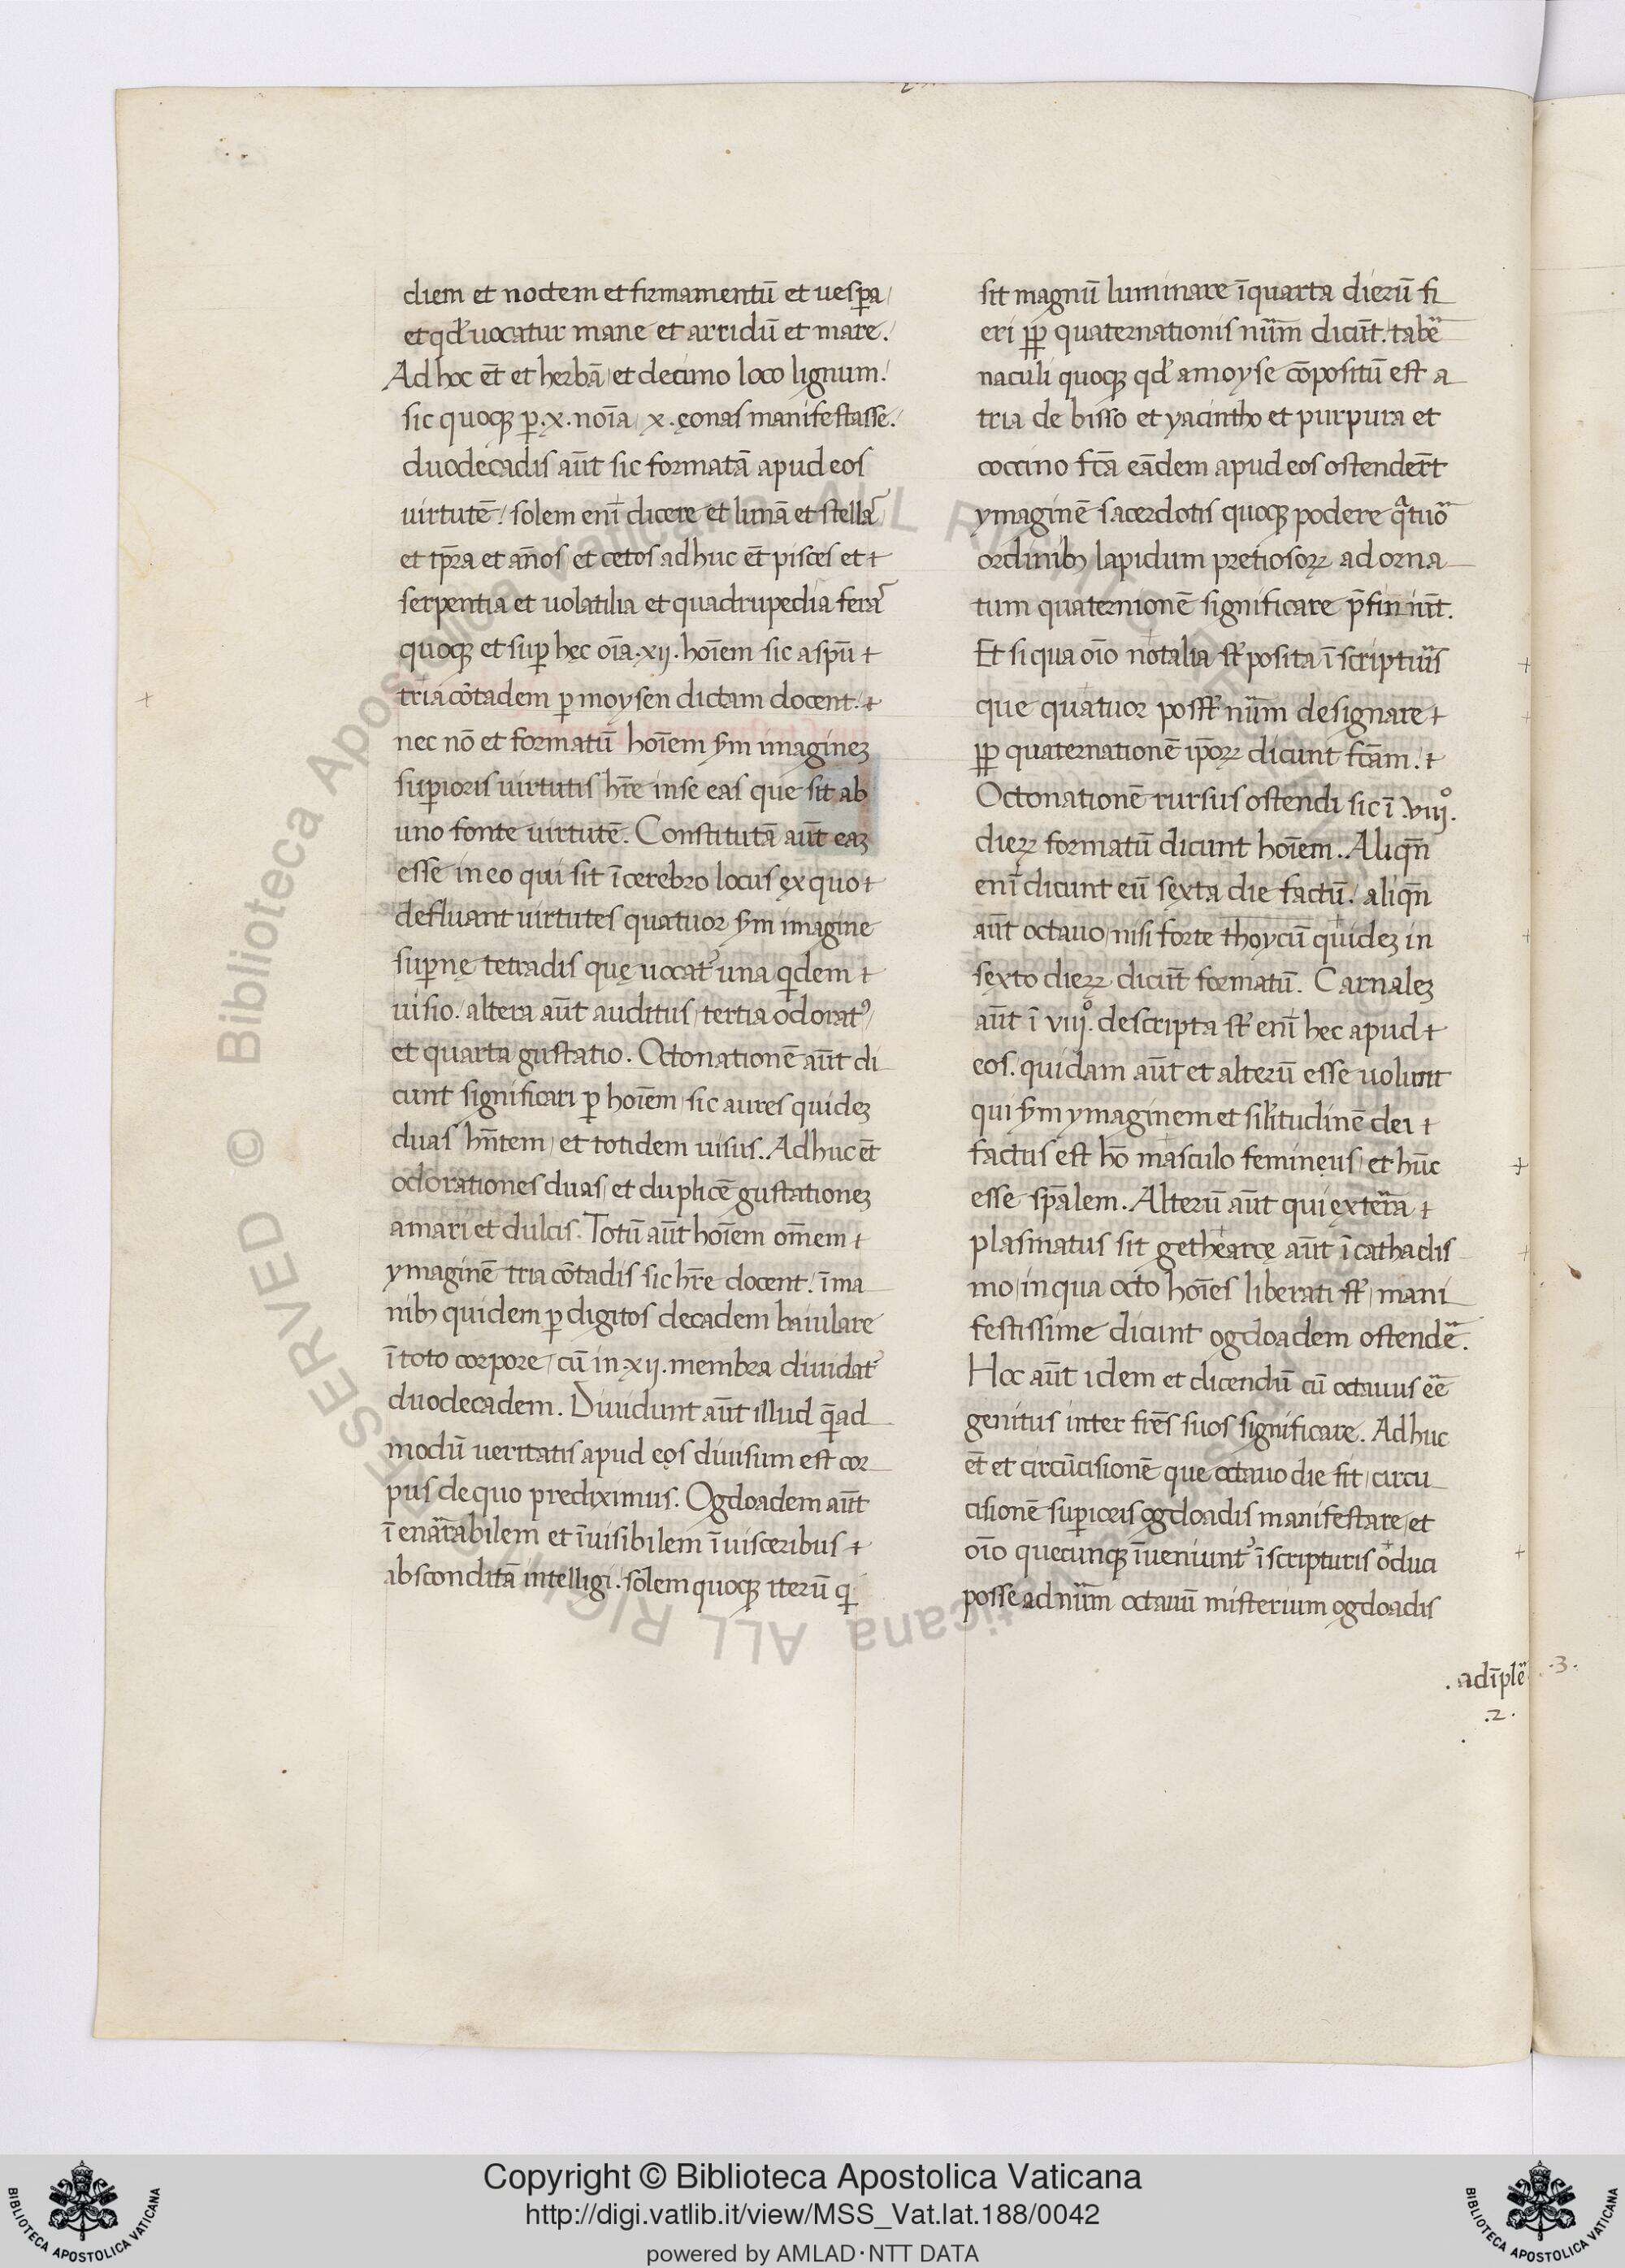 diem et noctem et firmamentū et uesꝑa
et qđ uocatur mane et arridū et mare.
Ad hoc et̄ et herbā et decimo loco lignum.
sic quoqꝫ ꝑ .x. noīa x. ęonas manifestasse.
duodecadis aūt sic formatā apud eos
uirtutē. solem eni̅ dicere et lunā et stellaˢ
et tp̄ra et an̄os et cetos adhuc et̄ pisces et
serpentia et uolatilia et quadrupedia feraˢ
quoqꝫ et suꝑ hęc oīa .xij. hoīem sic a spū
triacōtadem ꝑ moysen dictam docent.
nec nō et formatū hoīem s̄m imagineꝫ
suꝑioris uirtutis hr̄e in se eas que sit ab
uno fonte uirtutē. Constitutā aūt eaꝫ
esse in eo qui sit ī cerebro locus ęx quo
defluant uirtutes quatuor s̄m imagine
suꝑnę tetradis quę uocat᷑ una qͥdem
uisio. altera aūt auditus tertia odoratꝰ
et quarta gustatio. Octonationē aūt di
cunt significari ꝑ hoīem sic aures quideꝫ
duas hn̄tem et totidem uisus. Adhuc et̄
odorationes duas et duplicē gustationeꝫ
amari et dulcis. Totū aūt hoīem om̄em
ymaginē triacōtadis sic hr̄e docent. ī ma
nibꝫ quidem ꝑ digitos decadem baiulare
ī toto corpore cū in .xij. membra diuidat᷑
duodecadem. Diuidunt aūt illud q̄ad
modū ueritatis apud eos diuisum est cor
pus de quo prediximus. Ogdoadem aūt
ī enarrabilem et īuisibilem ī uisceribus
absconditā intelligi. solem quoqꝫ iterū qͥ
sit magnū luminare ī quarta dierū fi
eri ꝓꝑ quaternationis num̄ dicūt. tabē
naculi quoqꝫ qđ a moyse cōpositū est a
tria de bisso et yacintho et purpura et
coccino fc̄a eādem apud eos ostender̄t
ymaginē sacerdotis quoqꝫ podere qͣtuoʳ
ordinibꝫ lapidum pretiosoꝝ adorna
tum quaternionē significare p̄finiūt.
Et si qua oīo notalia st̄ posita ī scriptuˢ
que quatuor posst̄ num̄ designare
ꝓꝑ quaternationē ip̄oꝝ dicunt fc̄am.
Octonationē rursus ostendi sic ī .viijº.
dieꝝ formatū dicunt hoīem. Aliqn̄
eni̅ dicunt eū sęxta die factū. aliqn̄
aūt octauo nisi forte thoycū quideꝫ in
sęxto dieꝝ dicūt formatū. Carnaleꝫ
aūt ī viijº. descripta st̄ eni̅ hec apud
eos. quidam aūt et alterū esse uolunt
qui s̄m ymaginem et silitudinē dei
factus est hō masculo femineus et hūc
esse sp̄alem. Alterū aūt qui ex terra
plasmatus sit gethearcę aūt ī cathadis
mo in qua octo hoīes liberati st̄ mani
festissime dicunt ogdoadem ostendēʳ.
Hoc aūt idem et dicendū cū octauus eē
genitus inter frēs suos significare. Adhuc
et̄ et circūcisionē que octauo die fit circu
cisionē suꝑioris ogdoadis manifestare et
oīo quecunqꝫ īueniunt᷑ ī scripturis oduci
posse ad num̄ octauū misterium ogdoadis
. adīplēʳ .3.
.2.
Copyright © Biblioteca Apostolica Vaticana
http://digi.vatlib.it/view/MSS_Vat.lat.188/0042
powered by AMLAD·NTT DATA